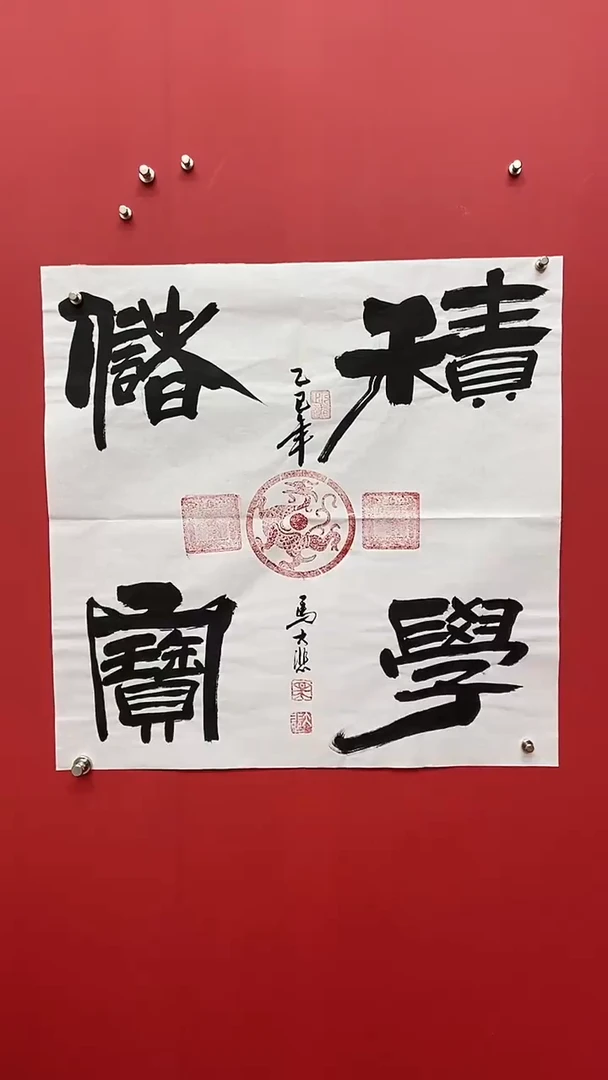 積學
儲寶
乙巳年
馬大悲